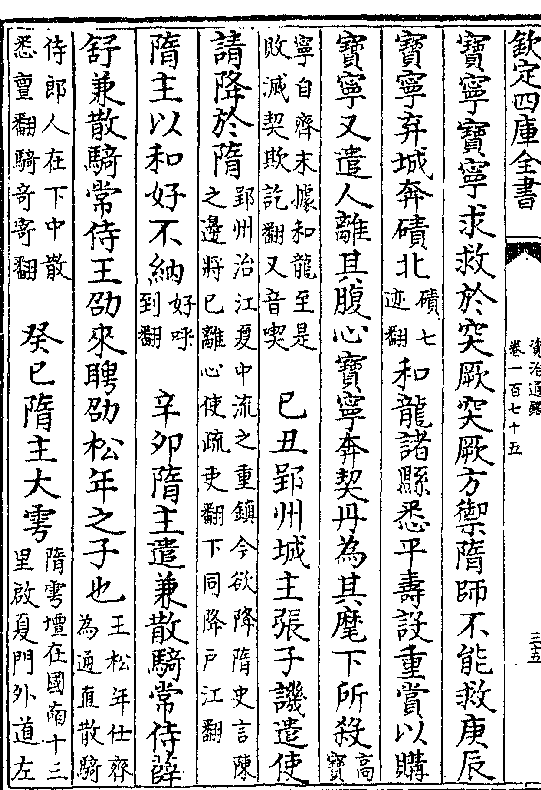 欽定四庫全書
資治通鑑
卷一百七十五
三五
寶寧寶寧求救於突厥突厥方禦隋師不能救庚辰
寶寧弃城奔磧北磧七迹翻和龍諸縣悉平壽設重賞以購
寶寧又遣人離其腹心寶寧奔契丹為其麾下所殺高寶
寧自齊末據和龍至是敗滅契欺訖翻又音喫 己丑郢州城主張子譏遣使
請降於隋郢州治江夏中流之重鎮今欲降隋史言陳之邊將已離心使疏吏翻下同降戶江翻
隋主以和好不納好呼到翻 辛卯隋主遣兼散騎常侍薛
舒兼散騎常侍王劭來聘劭松年之子也王松年仕齊為通直散騎
侍郎人在下中散悉亶翻騎奇寄翻 癸巳隋主大雩隋雩壇在國南十三里啟夏門外道左